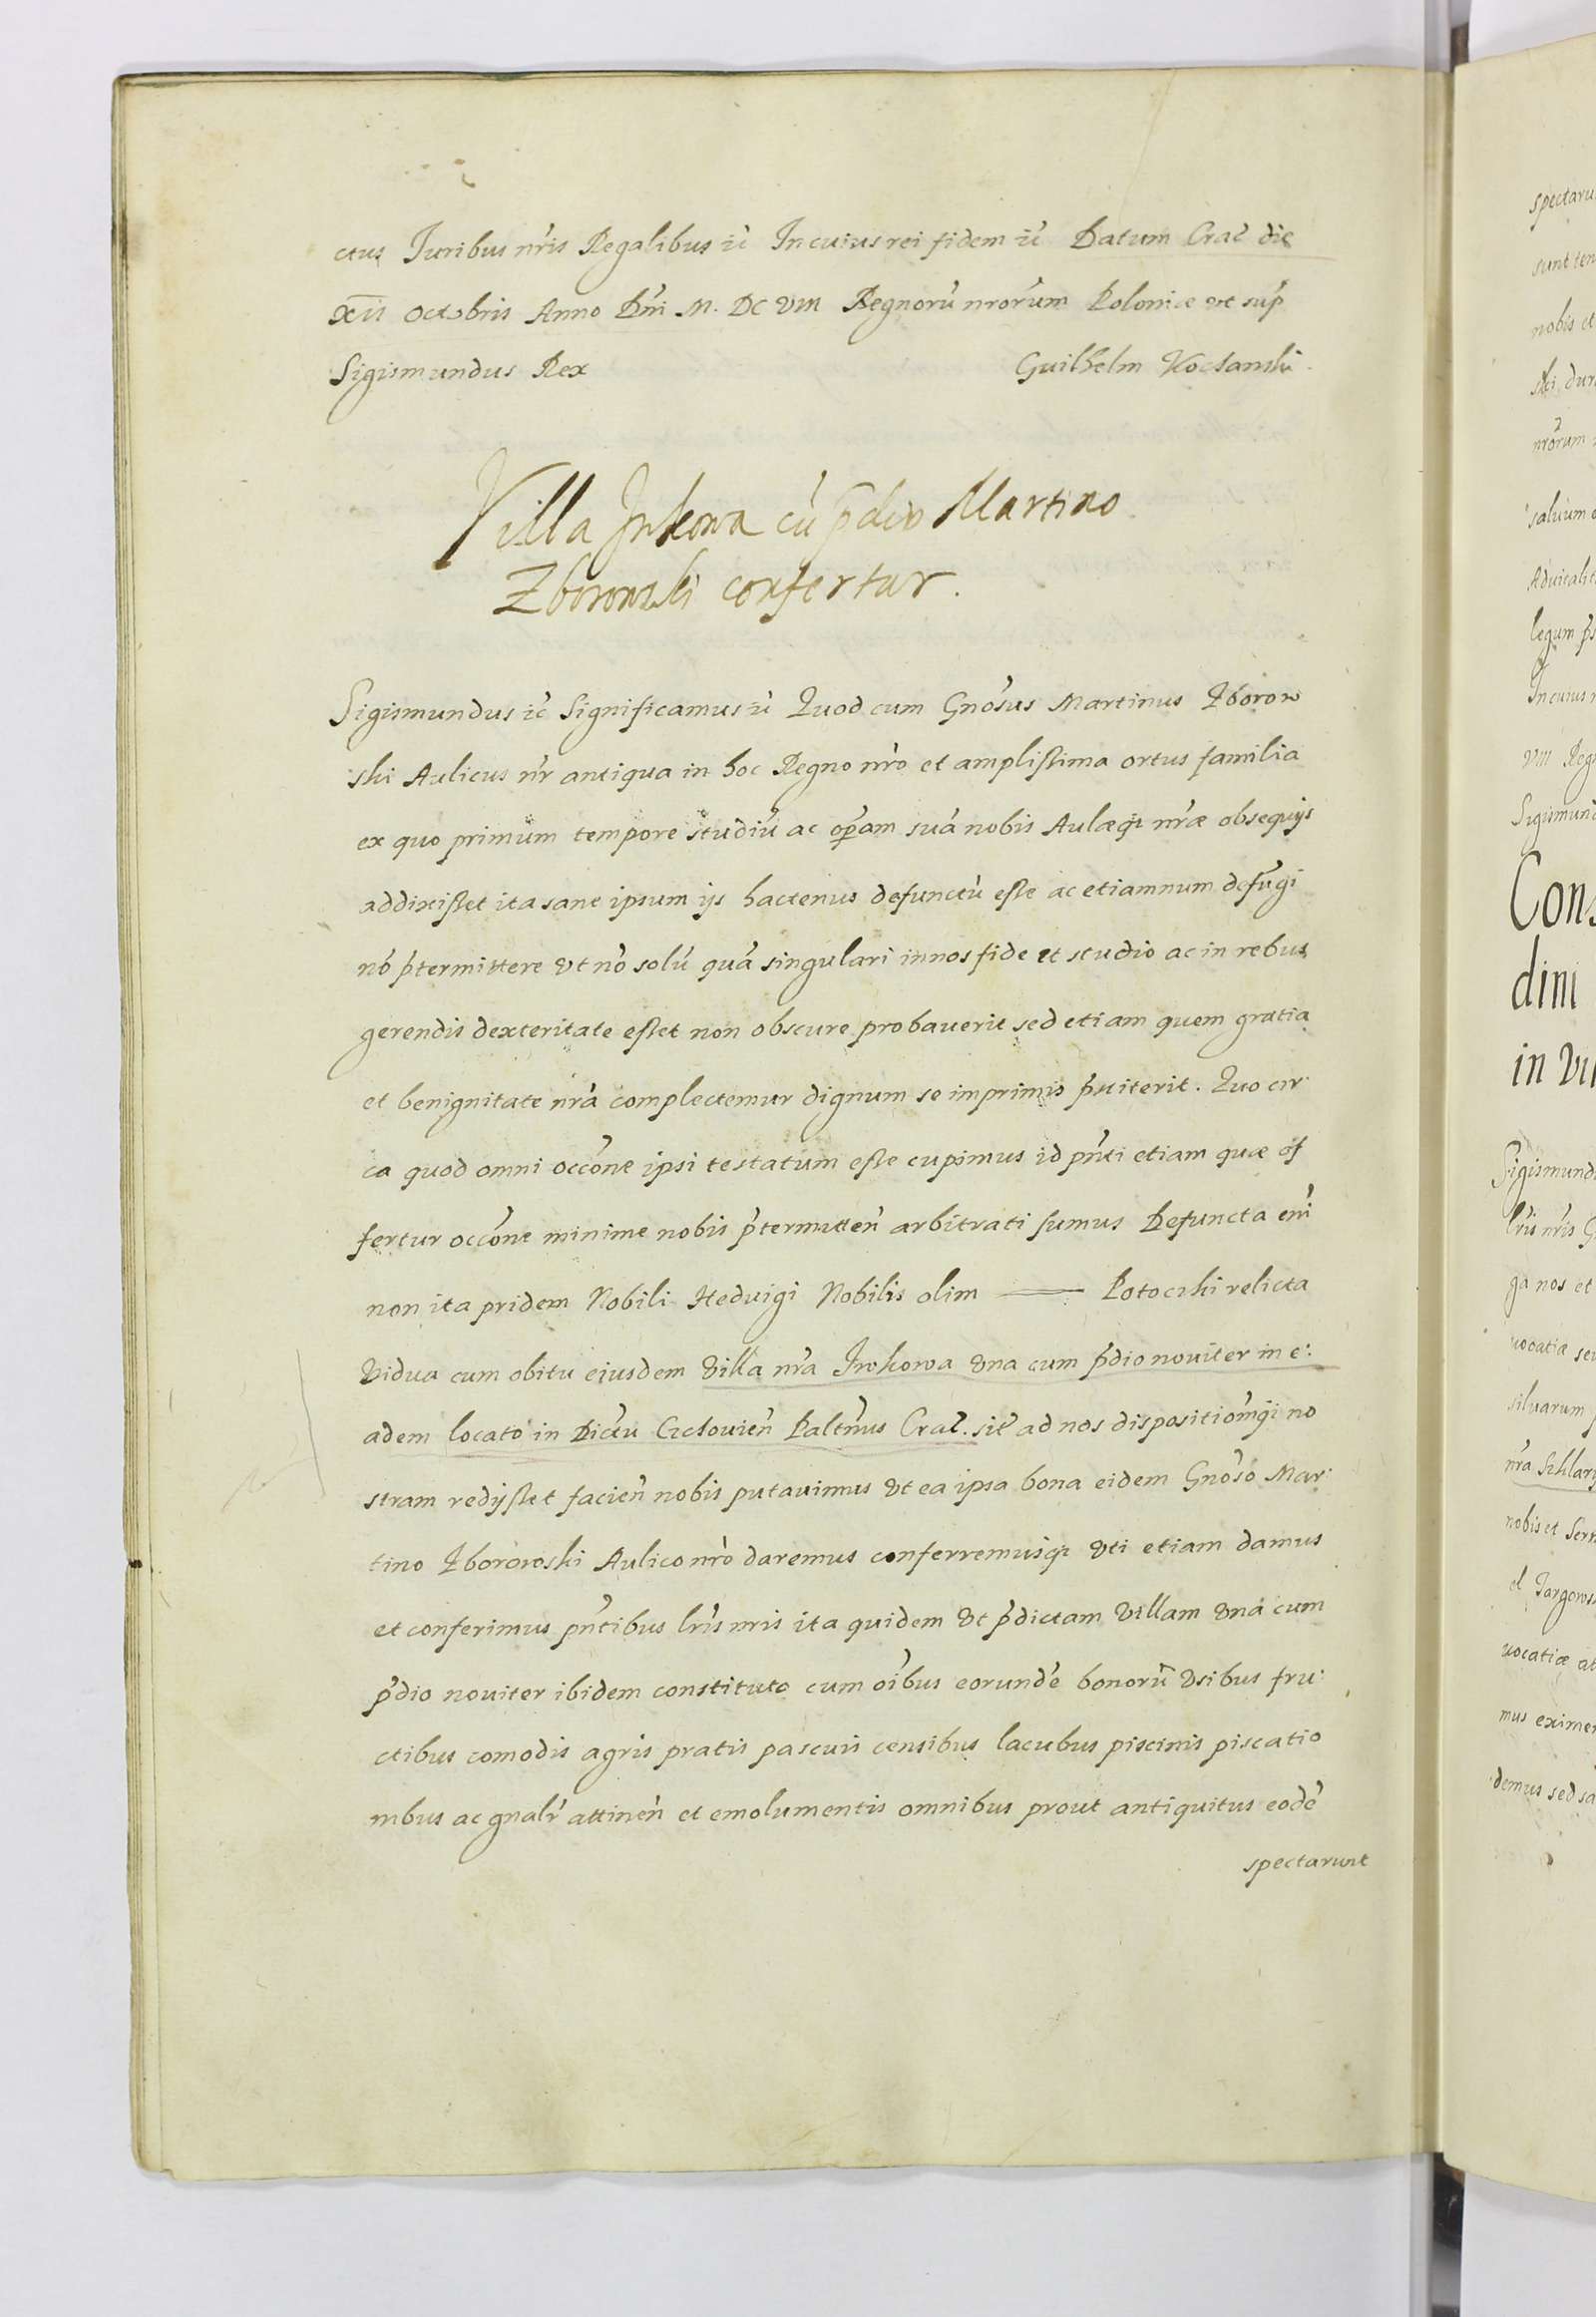 ctus Juribus nr̃is Regalibus &c̃ In cuius rei fidem &c̃ Datum Crac̃ die
XII Octobris Anno Dñi M. DC VIII Regnorũ nrõrum Poloniæ ut sup̃
Sigismundus Rex Guilhelm Kochanski
Villa Jnkowa cũ p̃dio Martino
Zborowski confertur.
Sigismundus &c̃ Significamus &c̃ Quod cum Gnõsus Martinus Zborow
ski Aulicus nr̃ antiqua in hoc Regno nrõ et amplissima ortus familia
ex quo primum tempore studiũ ac op̃am suã nobis Aulæq; nrã̃e obsequijs
addixisset ita sane ipsum ijs hactenus defunctũ esse ac etiamnum defũgi
nõ p̃termittere vt nõ solũ quã singulari in nos fide et studio ac in rebus
gerendis dexteritate esset non obscure probauerit sed etiam quem gratia
et benignitate nrã complectemur dignum se imprimis p̃stiterit. Quo cir
ca quod omni occõne ipsi testatum esse cupimus id pñti etiam quæ of
fertur occõne minime nobis p̃termitteñ arbitrati sumus Defuncta eñi
non ita pridem Nobili Heduigi Nobilis olim —— Potoczki relicta
vidua cum obitu eiusdem villa nrã Jwkowa vna cum p̃dio nouiter in e:
adem locato in Dictu Czchouieñ Paltñus Crac. sit̃ ad nos dispositiomq; no
stram redijsset facieñ nobis putauimus vt ea ipsa bona eidem Gnõso Mar
tino Zborowski Aulico nrõ daremus conferremusq; vti etiam damus
et conferimus pñtibus lrĩs nris ita quidem vt p̃dictam villam vnã cum
p̃dio nouiter ibidem constituto cum oĩbus eorundẽ bonorũ vsibus fru
ctibus comodis agris pratis pascuis censibus lacubus piscinis piscatio
nibus ac gnalr̃ attineñ et emolumentis omnibus prout antiquitus eodẽ
spectarunt